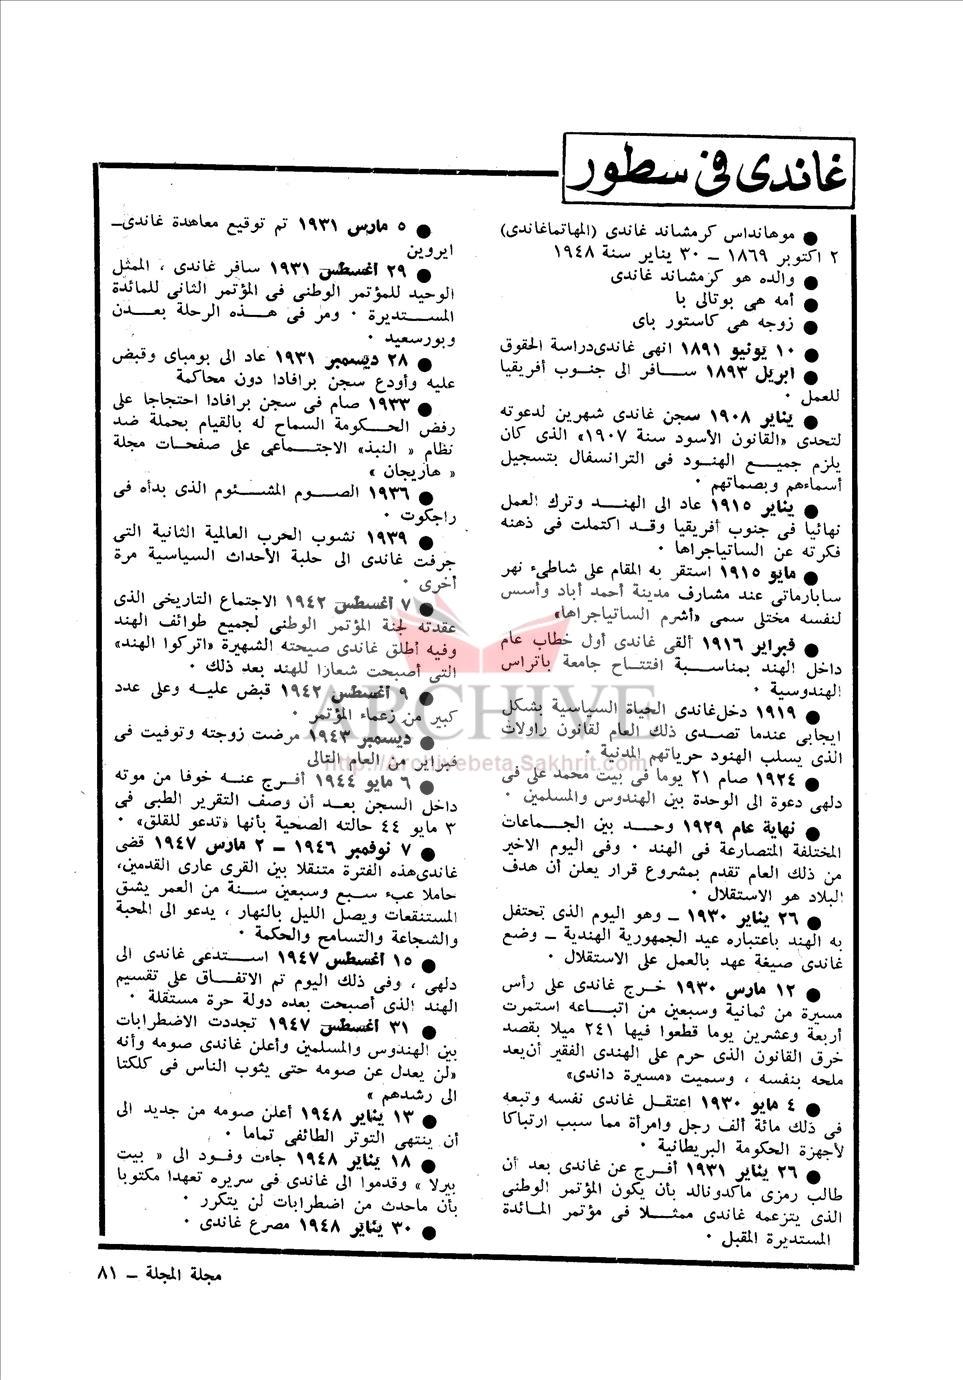 غاندى فى سطور
● موهانداس كرمشاند غاندى (المهاتماغاندى)
٢ اكتوبر ١٨٦٩ – ٣٠ يناير سنة ١٩٤٨
● والده هو كرمشاند غاندى
● أمه هى بوتالى با
● زوجه هى كاستور باى
● ١٠ يونيو ١٨٩١ انهى غاندى دراسة الحقوق
● ابريل ١٨٩٣ سافر الى جنوب أفريقيا
للعمل ٠
● يناير ١٩٠٨ سجن غاندى شهرين لدعوته
لتحدى «القانون الأسود سنة ١٩٠٧» الذى كان
يلزم جميع الهنود فى الترانسفال بتسجيل
أسماءهم وبصماتهم ٠
● يناير ١٩١٥ عاد الى الهند وترك العمل
نهائيا فى جنوب أفريقيا وقد اكتملت فى ذهنه
فكرته عن الساتياجراها ٠
● مايو ١٩١٥ استقر به المقام على شاطىء نهر
سابارماتى عند مشارف مدينة أحمد أباد وأسس
لنفسه مختلى سمى «أشرم الساتياجراها»
● فبراير ١٩١٦ ألقى غاندى أول خطاب عام
داخل الهند بمناسبة افتتاح جامعة باتراس
الهندوسية ٠
● ١٩١٩ دخل غاندى الحياة السياسية بشكل
ايجابى عندما تصدى ذلك العام لقانون راولات
الذى يسلب الهنود حرياتهم المدنية ٠
● ١٩٢٤ صام ٢١ يوما فى بيت محمد على فى
دلهى دعوة الى الوحدة بين الهندوس والمسلمين ٠
● نهاية عام ١٩٢٩ وحد بين الجماعات
المختلفة المتصارعة فى الهند ٠ وفى اليوم الاخير
من ذلك العام تقدم بمشروع قرار يعلن أن هدف
البلاد هو الاستقلال ٠
● ٢٦ يناير ١٩٣٠ – وهو اليوم الذى تحتفل
به الهند باعتباره عيد الجمهورية الهندية – وضع
غاندى صيغة عهد بالعمل على الاستقلال ٠
● ١٢ مارس ١٩٣٠ خرج غاندى على رأس
مسيرة من ثمانية وسبعين من اتباعه استمرت
أربعة وعشرين يوما قطعوا فيها ٢٤١ ميلا بقصد
خرق القانون الذى حرم على الهندى الفقير أن يعد
ملحه بنفسه ، وسميت «مسيرة داندى»
● ٤ مايو ١٩٣٠ اعتقل غاندى نفسه وتبعه
فى ذلك مائة ألف رجل وامرأة مما سبب ارتباكا
لأجهزة الحكومة البريطانية ٠
● ٢٦ يناير ١٩٣١ أفرج عن غاندى بعد أن
طالب رمزى ماكدونالد بأن يكون المؤتمر الوطنى
الذى يتزعمه غاندى ممثلا فى مؤتمر المائدة
المستديرة المقبل ٠
● ٥ مارس ١٩٣١ تم توقيع معاهدة غاندى–
ايروين
● ٢٩ أغسطس ١٩٣١ سافر غاندى ، الممثل
الوحيد للمؤتمر الوطنى فى المؤتمر الثانى للمائدة
المستديرة ٠ ومر فى هذه الرحلة بعدن
وبورسعيد ٠
● ٢٨ ديسمبر ١٩٣١ عاد الى بومباى وقبض
عليه وأودع سجن برافادا دون محاكمة
● ١٩٣٣ صام فى سجن برافادا احتجاجا على
رفض الحكومة السماح له بالقيام بحملة ضد
نظام « النبذ» الاجتماعى على صفحات مجلة
« هاريجان »
● ١٩٣٦ الصوم المشئوم الذى بدأه فى
راجكوت ٠
● ١٩٣٩ نشوب الحرب العالمية الثانية التى
جرفت غاندى الى حلبة الأحداث السياسية مرة
أخرى ٠
● ٧ أغسطس ١٩٤٢ الاجتماع التاريخى الذى
عقدته لجنة المؤتمر الوطنى لجميع طوائف الهند
وفيه أطلق غاندى صيحته الشهيرة «اتركوا الهند»
التى أصبحت شعارا للهند بعد ذلك ٠
● ٩ أغسطس ١٩٤٢ قبض عليه وعلى عدد
كبير من زعماء المؤتمر ٠
● ديسمبر ١٩٤٣ مرضت زوجته وتوفيت فى
فبراير من العام التالى
● ٦ مايو ١٩٤٤ أفرج عنه خوفا من موته
داخل السجن بعد أن وصف التقرير الطبى فى
٣ مايو ٤٤ حالته الصحية بأنها «تدعو للقلق» ٠
● ٧ نوفمبر ١٩٤٦ – ٢ مارس ١٩٤٧ قضى
غاندى هذه الفترة متنقلا بين القرى عارى القدمين،
حاملا عبء سبع وسبعين سنة من العمر يشق
المستنقعات ويصل الليل بالنهار ، يدعو الى المحبة
والشجاعة والتسامح والحكمة ٠
● ١٥ أغسطس ١٩٤٧ استدعى غاندى الى
دلهى ، وفى ذلك اليوم تم الاتفاق على تقسيم
الهند الذى أصبحت بعده دولة حرة مستقلة ٠
● ٣١ أغسطس ١٩٤٧ تجددت الاضطرابات
بين الهندوس والمسلمين وأعلن غاندى صومه وأنه
«لن يعدل عن صومه حتى يثوب الناس فى كلكتا
الى رشدهم »
● ١٣ يناير ١٩٤٨ أعلن صومه من جديد الى
أن ينتهى التوتر الطائفى تماما ٠
● ١٨ يناير ١٩٤٨ جاءت وفود الى « بيت
بيرلا » وقدموا الى غاندى فى سريره تعهدا مكتوبا
بأن ماحدث من اضطرابات لن يتكرر ٠
● ٣٠ يناير ١٩٤٨ مصرع غاندى ٠
ARCHIVE
http://Archivebeta.Sakhrit.com
مجلة المجلة – ٨١